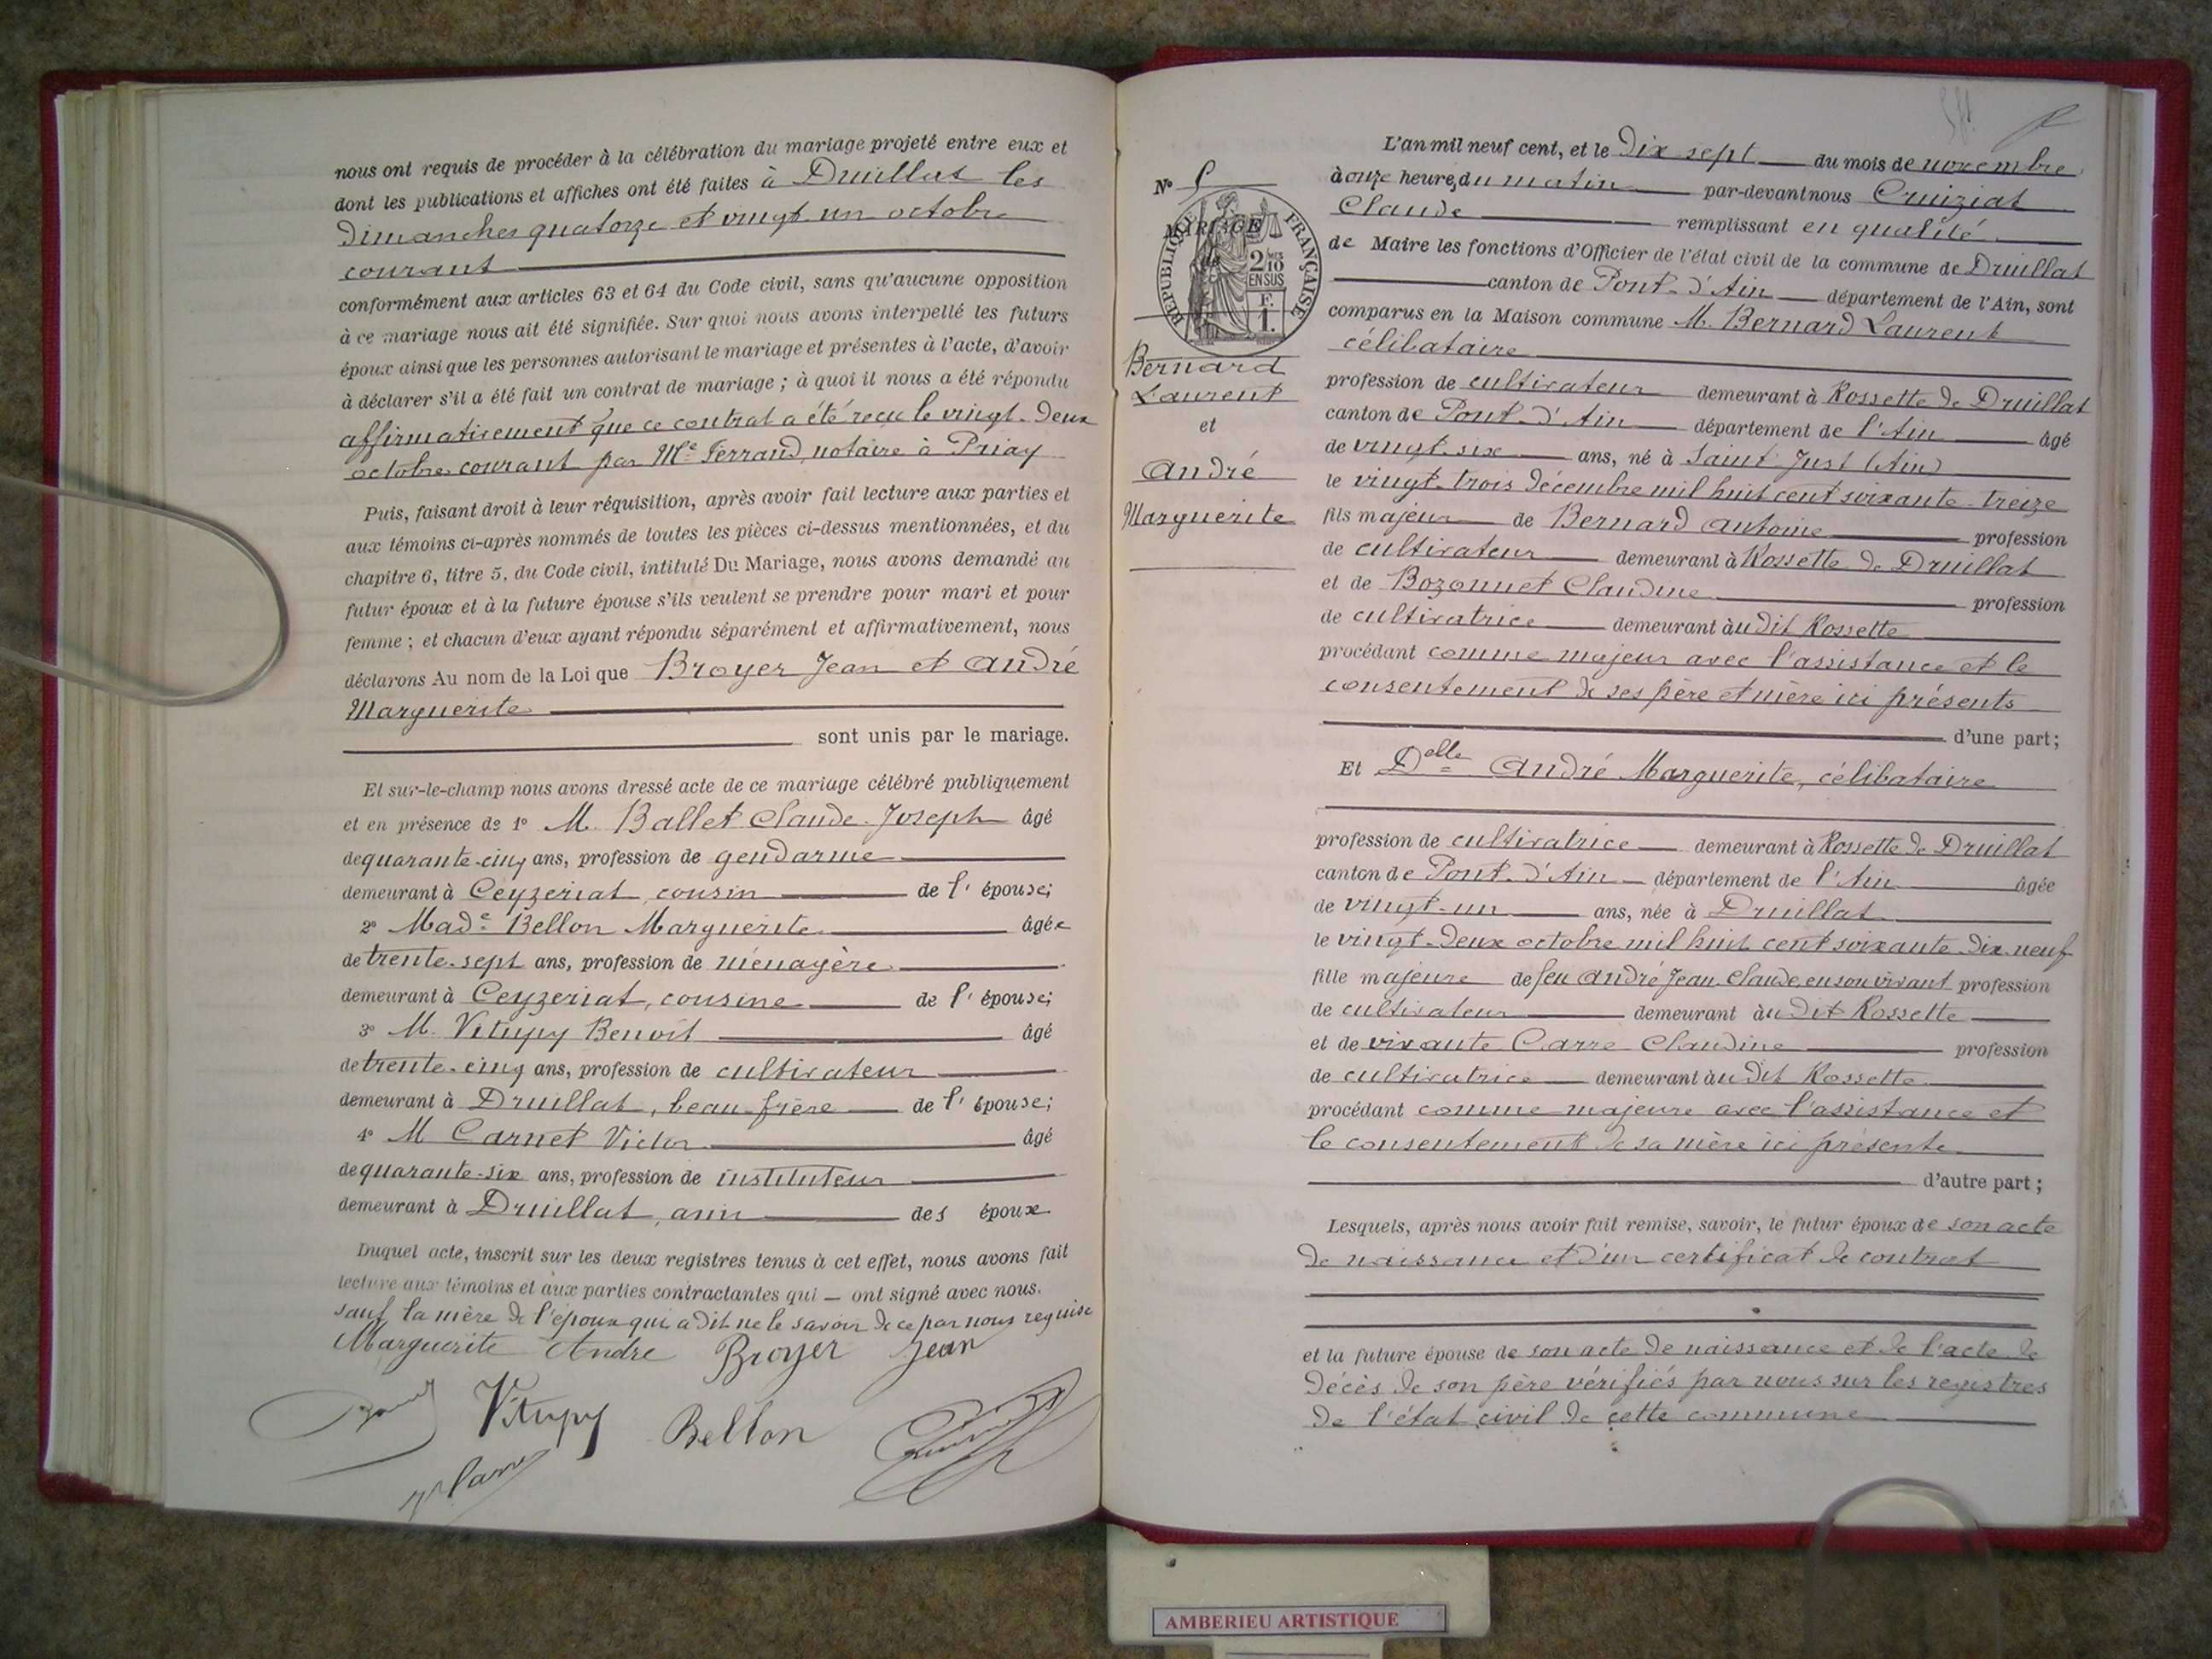 nous ont requis de procéder à la célébration du mariage projeté entre eux et
dont les publications et affiches ont été faites à Druillat les
dimanches quatorze et vingt-un octobre
courant
conformément aux articles 63 et 64 du Code civil, sans qu'aucune opposition
à ce mariage nous ait été signifiée. Sur quoi nous avons interpellé les futurs
époux ainsi que les personnes autorisant le mariage et présentes à l'acte, d'avoir
à déclarer s'il a été fait un contrat de mariage ; à quoi il nous a été répondu
affirmativement que ce contrat a été reçu le vingt-deux
octobre courant par Me Ferrand, notaire à Priay
Puis, faisant droit à leur réquisition, après avoir fait lecture aux parties et
aux témoins ci-après nommés de toutes les pièces ci-dessus mentionnées, et du
chapitre 6, titre 5, du Code civil, intitulé Du Mariage, nous avons demandé au
futur époux et à la future épouse s'ils veulent se prendre pour mari et pour
femme ; et chacun d'eux ayant répondu séparément et affirmativement, nous
déclarons Au nom de la Loi que Broyer Jean et André
Marguerite
sont unis par le mariage.
Et sur-le-champ nous avons dressé acte de ce mariage célébré publiquement
et en présence de 1° M. Ballet Claude-Joseph âgé
de quarante-cinq ans, profession de gendarme
demeurant à Ceyzeriat, cousin de l'épouse;
2° Made Bellon Marguerite âgée
de trente-sept ans, profession de ménagère
demeurant à Ceyzeriat, cousine de l'épouse;
3° M. Vitupy Benoît âgé
de trente-cinq ans, profession de cultivateur
demeurant à Druillat, beau-frère de l'épouse;
4° M Carnet Victor âgé
de quarante-six ans, profession de instituteur
demeurant à Druillat, ami des époux
Duquel acte, inscrit sur les deux registres tenus à cet effet, nous avons fait
lecture aux témoins et aux parties contractantes qui — ont signé avec nous.
sauf la mère de l'époux qui a dit ne le savoir de ce par nous requise
Marguerite André Broyer Jean
Vitupy Bellon
N° 5
MARIAGE
de
RÉPUBLIQUE FRANÇAISE
2 MES
10
EN SUS
F.
1.
Bernard
Laurent
et
André
Marguerite
L'an mil neuf cent, et le dix sept du mois de novembre
à onze heures du matin par-devant nous Cruiziat
Claude remplissant en qualité
de Maire les fonctions d'Officier de l'état civil de la commune de Druillat
canton de Pont-d'Ain département de l'Ain, sont
comparus en la Maison commune M. Bernard Laurent
célibataire
profession de cultivateur demeurant à Rossette de Druillat
canton de Pont-d'Ain département de l'Ain âgé
de vingt-six ans, né à Saint Just (Ain)
le vingt-trois décembre mil huit cent soixante-treize
fils majeur de Bernard Antoine profession
de cultivateur demeurant à Rossette de Druillat
et de Bozonnet Claudine profession
de cultivatrice demeurant àudit Rossette
procédant comme majeur avec l'assistance et le
consentement de ses père et mère ici présents
d'une part;
Et Delle André Marguerite, célibataire
profession de cultivatrice demeurant à Rossette de Druillat
canton de Pont-d'Ain département de l'Ain âgée
de vingt-un ans, née à Druillat
le vingt-deux octobre mil huit cent soixante-dix-neuf
fille majeure de feu André Jean-Claude, en son vivant profession
de cultivateur demeurant àudit Rossette
et de vivante Carre Claudine profession
de cultivatrice demeurant àudit Rossette
procédant comme majeure avec l'assistance et
le consentement de sa mère ici présente
d'autre part ;
Lesquels, après nous avoir fait remise, savoir, le futur époux de son acte
de naissance et d'un certificat de contrat
et la future épouse de son acte de naissance et de l'acte de
décès de son père vérifiés par nous sur les registres
de l'état civil de cette commune
AMBERIEU ARTISTIQUE